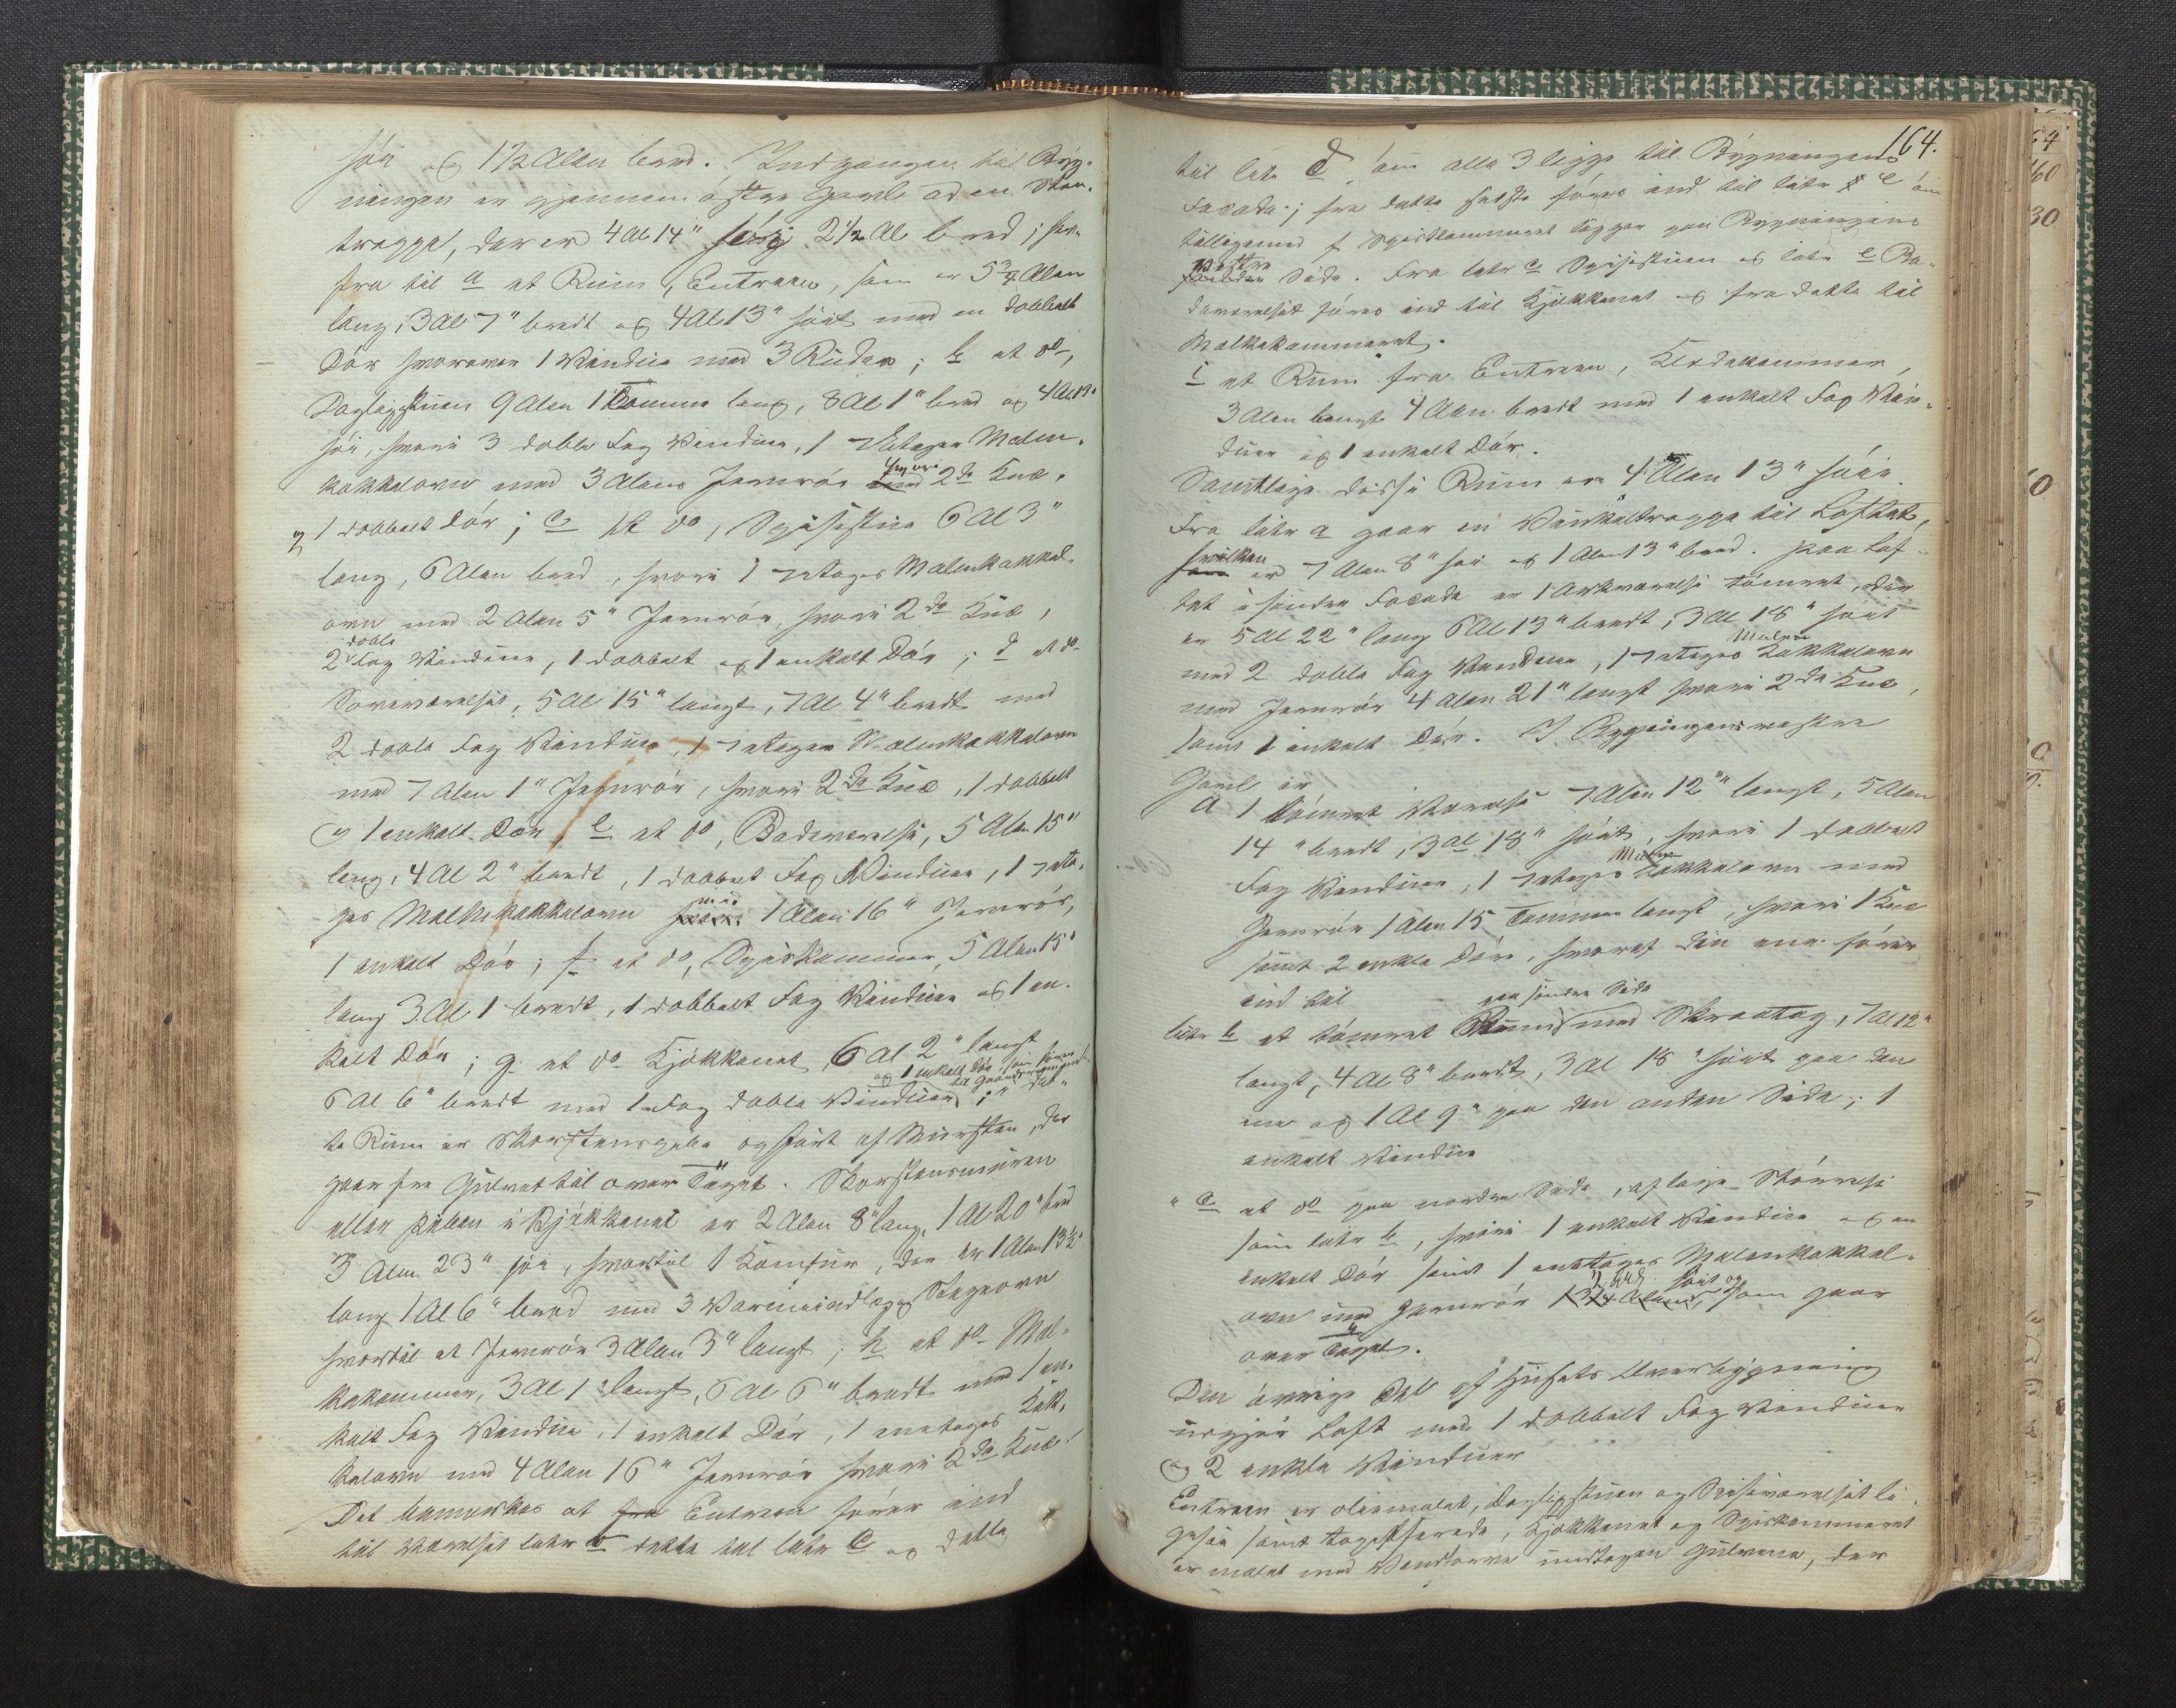 høi og 1½ Alen bred. Indgangen til Byg-
ningen er gjennem østre Gavl ad en Sten-
trappe, der er 4 Al 14" høi 2½ Al bred; her-
fra til a et Rum, Entreen, som er 5¾ Alen
lang, 3 Al 7" bredt og 4 Al 13" høit med en dobbelt
Dør hvorover 1 Vindue med 3 Ruder; b et do,
Dagligstuen 9 Alen 1 Tomme lang, 8 Al 1" bred og 4 Al 19"
høi, hvori 3 doble Fag Vinduer, 1 7 Etages Malm-
kakkelovn med 3 Alens Jernrør hvori 2de Knæ,
og 1 dobbelt Dør; c et do, Spisestue 6 Al 3"
lang, 6 Alen bred, hvori 1 7 etages Malmkakkel-
ovn med 2 Alen 5" Jernrør, hvori 2de Knæ,
doble
2 Fag Vinduer, 1 dobbelt og 1 enkelt Dør; d et do
Soveværelset, 5 Al 15" langt, 7 Al 4" bredt med
2 doble Fag Vinduer, 1 7 etages Malmkakkelovn
med 7 Alen 1" Jernrør, hvori 2de Knæ, 1 dobbelt
og 1 enkelt Dør, e et do, Badeværelse, 5 Alen 15"
lang, 4 Al 2" bredt, 1 dobbelt Fag Vinduer, 1 7 eta-
ges Malmkakkelovn med 1 Alen 16" Jernrør,
1 enkelt Dør; f et do, Spiskammer, 5 Alen 15"
lang 3 Al 1 bredt, 1 dobbelt Fag Vinduer og 1 en-
kelt Dør; g. et do Kjøkkenet, 6 Al 2" langt
og 1 enkelt Dør, som fører
til
6 Al 6" bredt med 1 Fag doble Vinduer; " Det-
te Rum er Skorstenspibe opført af Mursten, der
gaar fra Gulvet til over Taget. Skorstensmuren
eller Piben i Kjøkkenet er 2 Alen 8" lang, 1 Al 20" bred
3 Alen 23" høi, hvortil 1 Komfur, der er 1 Alen 13½"
lang 1 Al 6" bred med 3 Varmeindlæg Stegeovn
hvortil et Jernrør 3 Alen 3" langt; h et do Mel-
kekammer, 3 Al 1" langt, 6 Al 6" bredt med 1 en-
kelt Fag Vindue, 1 enkelt Dør, 1 enetages Kak-
kelovn med 4 Alen 16" Jernrør hvori 2de Knæ!
Det bemærkes at fra Entreen fører ind
til Værelset litr b dette til litr c og dette
164.
til litr d, som alle 3 ligge til Bygningens
Facade; fra dette sidste føres ind til litr e som
tilligemed f Spiskammeret ligger paa Bygningens
vestre
Side. Fra litr c Spisestuen og litr e Ba-
deværelset føres ind til Kjøkkenet og fra dette til
Melkekammeret.
i et Rum fra Entreen, Klædekammer,
3 Alen langt 4 Alen bredt med 1 enkelt Fag Vin-
duer og 1 enkelt Dør.
Samtlige disse Rum ere 4 Alen 13" høie.
Fra litr a gaar en Vinkeltrappe til Loftet,
hvilken
er 7 Alen 8" høi og 1 Alen 13" bred. Paa Lof-
tet i søndre Facade er 1 Arkværelse tømret, der
er 5 Al 22" lang 6 Al 13" bredt, 3 Al 18" høit
Malm
med 2 doble Fag Vinduer, 1 7 etages Kakkelovn
med Jernrør 4 Alen 21" langt hvori 2de Knæ,
samt 1 enkelt Dør. I Bygningens vestre
Gavl er
a 1 tømret Værelse 7 Alen 12" langt, 5 Alen
14" bredt, 3 Al 18" høit, hvori 1 dobbelt
Malm
Fag Vinduer, 1 7 etages Kakkelovn med
Jernrør 1 Alen 15 Tommer langt, hvori 1 Knæ
samt 2 enkle Døre, hvoraf den ene fører
ind til
paa søndre Side
litr b et tømret Rum med Skraatag, 7 Al 12"
langt, 4 Al 8" bredt, 3 Al 18" høit paa den
ene og 1 Al 9" paa den anden Side; 1
enkelt Vindue
" c et do paa nordre Side, af lige Størrelse
som litr b, hvori 1 enkelt Vindue og en
enkelt Dør samt 1 enetages Malmkakkel-
ovn med Jernrør høit og som gaar
over Taget.
Den øvrige Del af Husets Overbygning
udgjør Loft med 1 dobbelt Fag Vinduer
og 2 enkle Vinduer
Entreen er oliemalet, Dagligstuen og Spiseværelset li-
gesaa samt tapetserede, Kjøkkenet og Spiskammeret
er malet med Vandfarve undtagen Gulvene, der